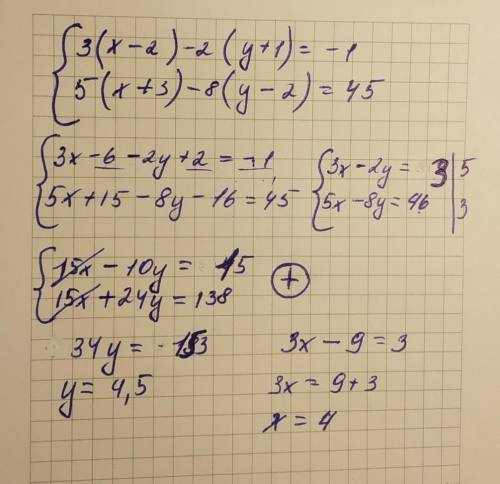 3(x-2)-2(y+1)=-1
5(x+3)-8(y-2)=45
3x-6-2y+2=-1
5x+15-8y-16=45
3x-2y= 3 | 5
5x-8y=46 | 3
15x-10y= 15
15x+24y=138
+
34y=-153
y=4,5
3x-9=3
3x=9+3
x=4